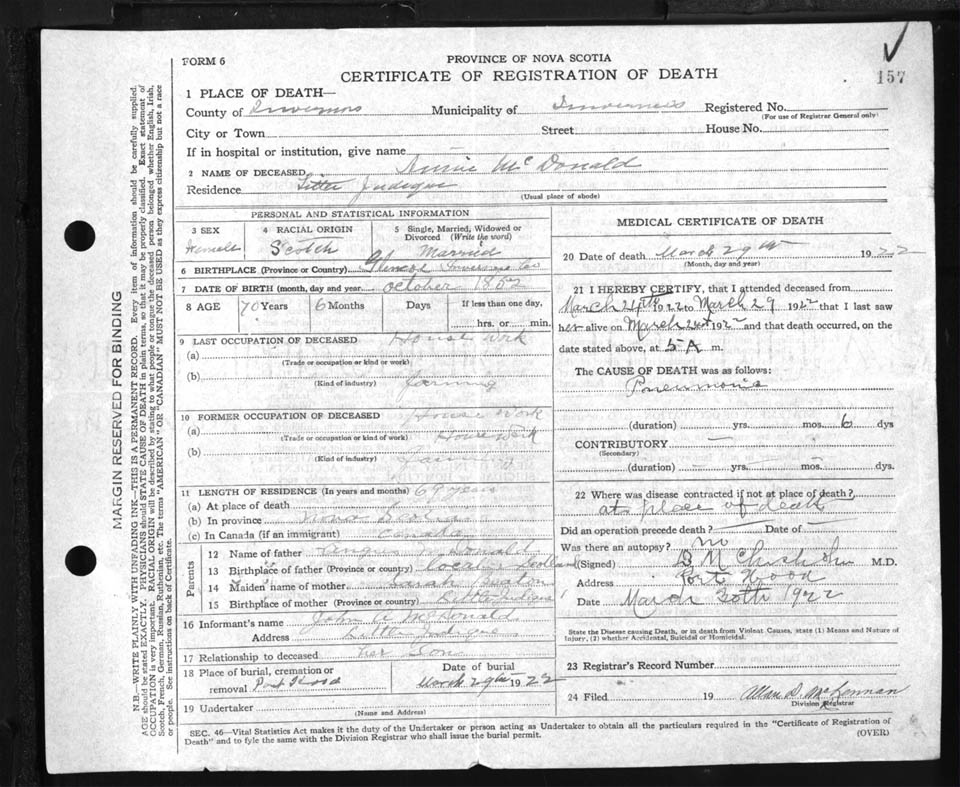 157
FORM 6
PROVINCE OF NOVA SCOTIA
CERTIFICATE OF REGISTRATION OF DEATH
1 PLACE OF DEATH—
County of Inverness Municipality of Inverness Registered No.
(For use of Registrar General only)
City or Town Street House No.
If in hospital or institution, give name —
2 NAME OF DECEASED Annie McDonald
Residence Little Judique
(Usual place of abode)
PERSONAL AND STATISTICAL INFORMATION
3 SEX
Female
4 RACIAL ORIGIN
Scotch
5 Single, Married, Widowed or
Divorced (Write the word)
Married
6 BIRTHPLACE (Province or Country) Glencoe Inverness Co
7 DATE OF BIRTH (month, day and year) October 1852
8 AGE 70 Years 6 Months Days If less than one day,
hrs. or min.
9 LAST OCCUPATION OF DECEASED House Work
(a)
(Trade or occupation or kind or work)
(b) farming
(Kind of industry)
10 FORMER OCCUPATION OF DECEASED House Work
(a) House Work
(Trade or occupation or kind of work)
(b) farming
(Kind of industry)
11 LENGTH OF RESIDENCE (In years and months) 69 years
(a) At place of death
(b) In province Nova Scotia
(c) In Canada (if an immigrant) Canada
Parents
12 Name of father Angus McDonald
13 Birthplace of father (Province or country) Scotland
14 Maiden name of mother Sarah Beaton
15 Birthplace of mother (Province or country) Little Judique
16 Informant's name John A McDonald
Address Little Judique
17 Relationship to deceased her Son
18 Place of burial, cremation or
removal Port Hood
Date of burial
March 29th 1922
19 Undertaker
(Name and Address)
MEDICAL CERTIFICATE OF DEATH
20 Date of death March 29th 1922
(Month, day and year)
21 I HEREBY CERTIFY, that I attended deceased from
March 24th 1922 to March 29 1922 that I last saw
her alive on March 24th 1922 and that death occurred, on the
date stated above, at 5 A m.
The CAUSE OF DEATH was as follows:
Pneumonia
(duration) yrs. mos. 6 dys
CONTRIBUTORY —
(Secondary)
(duration) — yrs. — mos. — dys.
22 Where was disease contracted if not at place of death?
at place of death
Did an operation precede death? — Date of —
Was there an autopsy? no
(Signed) M.D.
Address Port Hood
Date March 30th 1922
State the Disease causing Death, or in death from Violent Causes, state (1) Means and Nature of
Injury, (2) whether Accidental, Suicidal or Homicidal.
23 Registrar's Record Number
24 Filed 19 Allan D. McLennan
Division Registrar
SEC. 46—Vital Statistics Act makes it the duty of the Undertaker or person acting as Undertaker to obtain all the particulars required in the "Certificate of Registration of
Death" and to fyle the same with the Division Registrar who shall issue the burial permit. (OVER)
MARGIN RESERVED FOR BINDING
N.B.—WRITE PLAINLY WITH UNFADING INK—THIS IS A PERMANENT RECORD. Every item of information should be carefully supplied.
AGE should be stated EXACTLY. PHYSICIANS should STATE CAUSE OF DEATH in plain terms, so that it may be properly classified. Exact statement of
OCCUPATION is very important. RACIAL ORIGIN will be described by stating to what people or tongue the deceased person belonged whether English, Irish,
Scotch, French, German, Russian, Ruthenian, etc. The terms "AMERICAN" OR "CANADIAN" MUST NOT BE USED as they express citizenship but not a race
or people. See instructions on back of Certificate.